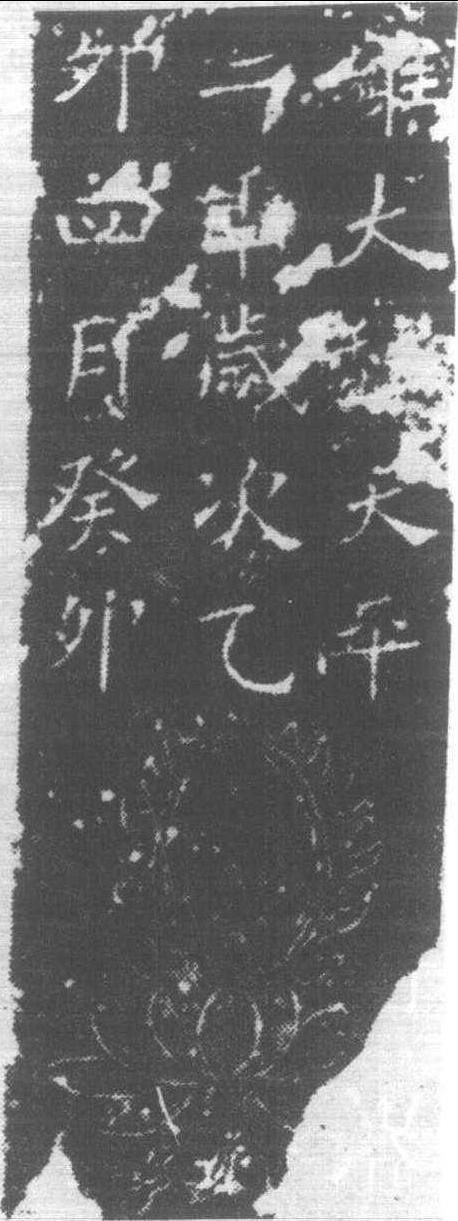 維大天平
二年歲次乙
卯四月癸卯